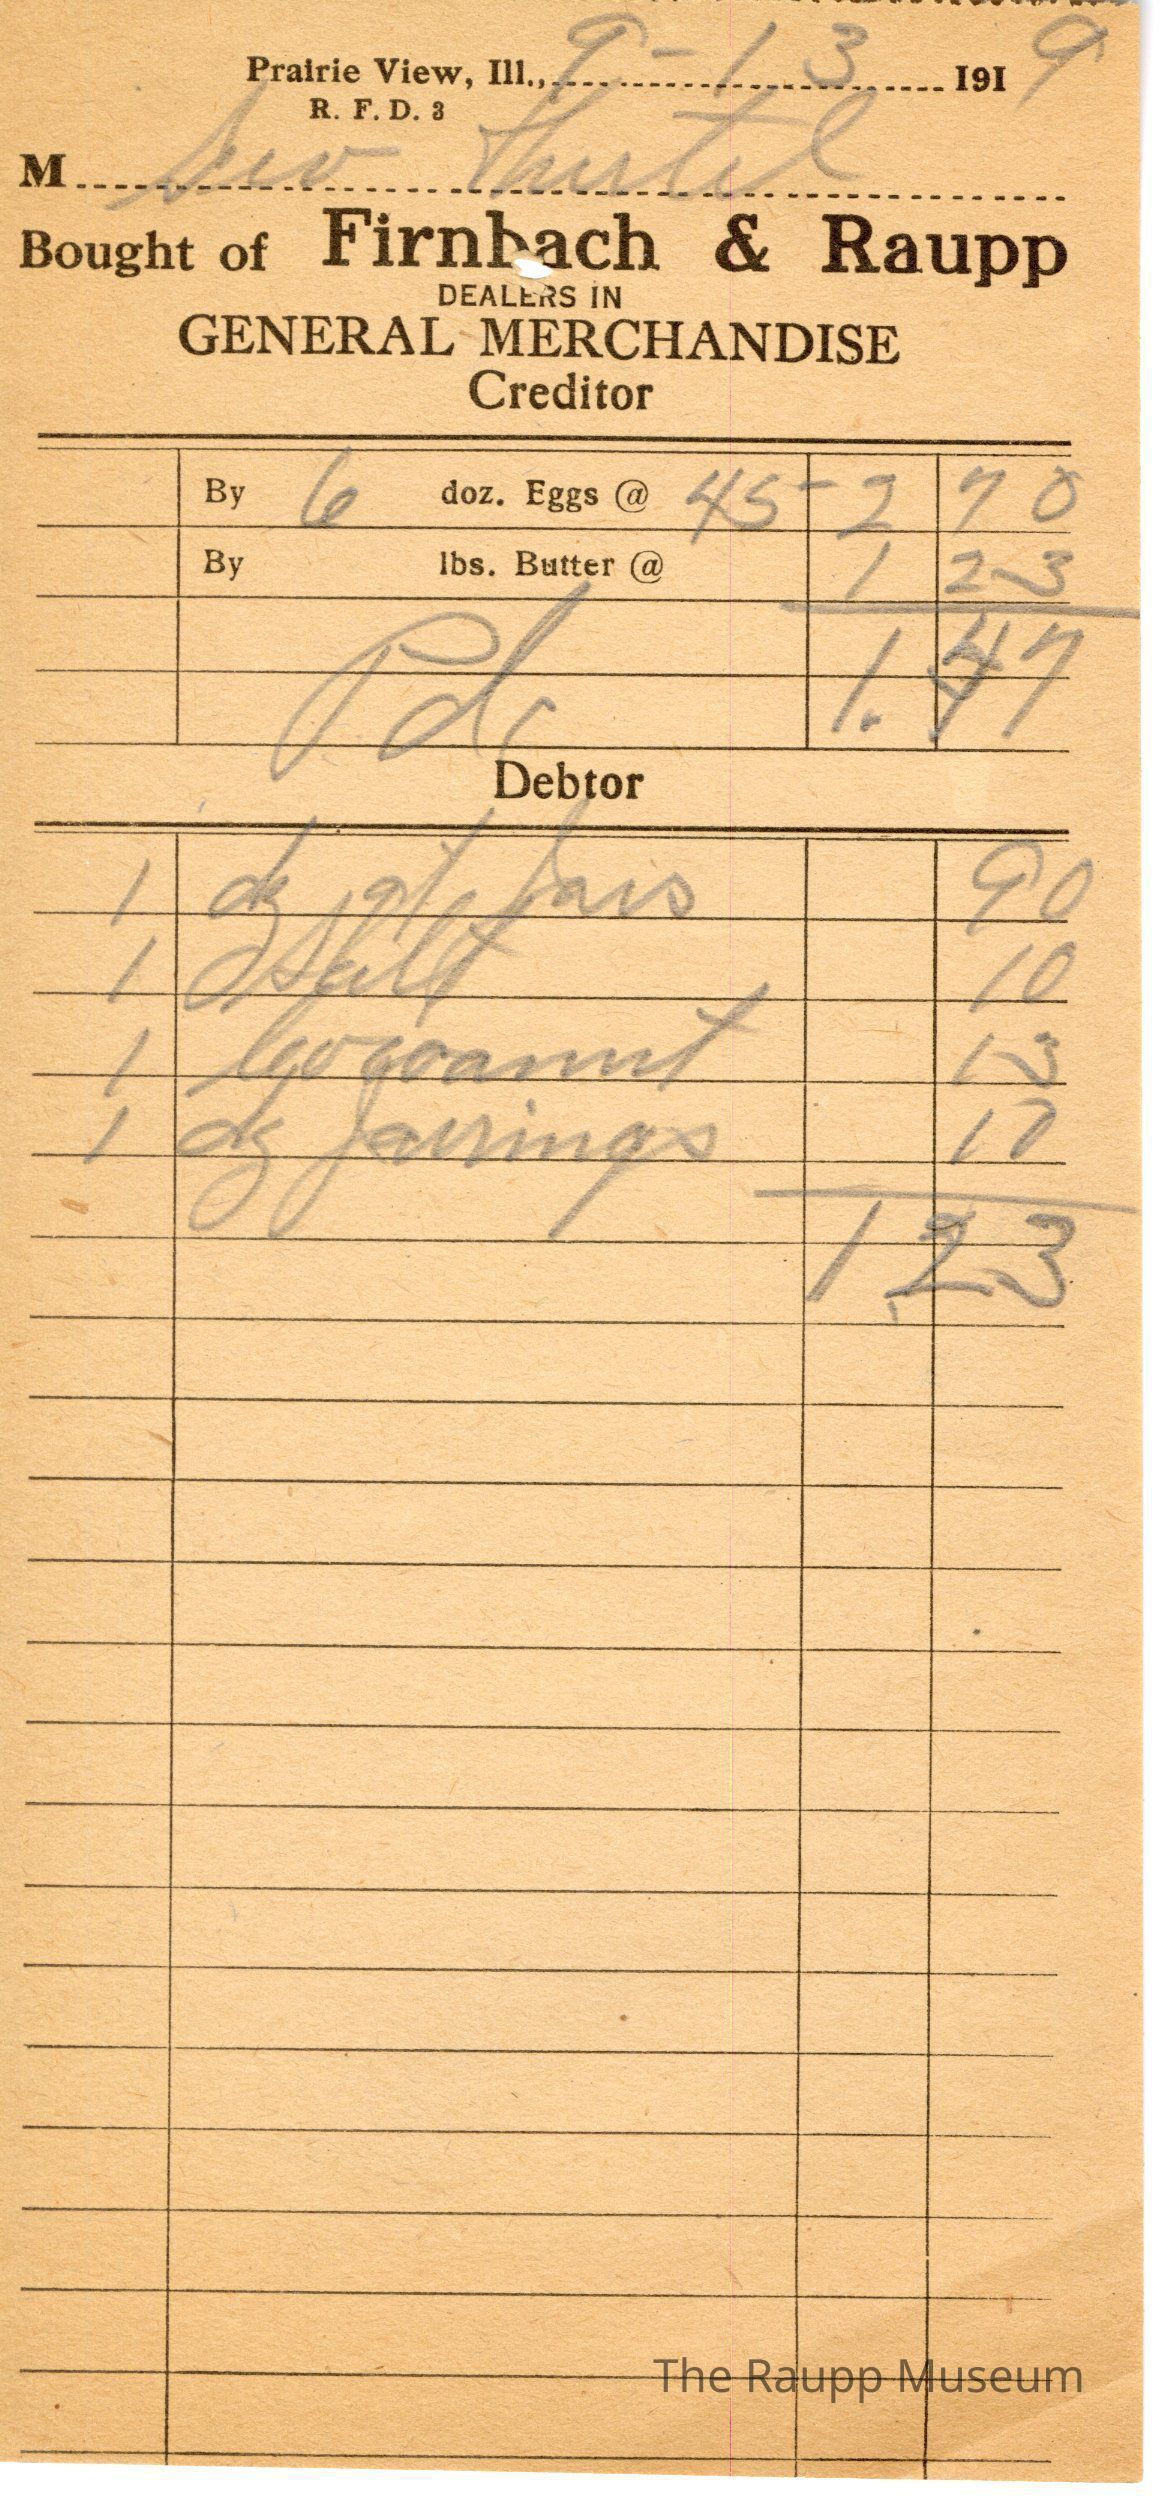 Prairie View, Ill., 9-13 1919
R. F. D. 3
M Geo
Bought of Firnbach & Raupp
DEALERS IN
GENERAL MERCHANDISE
Creditor
By 6 doz. Eggs @ 45 - 2 70
By lbs. Butter @ 1 23
Pd. 1.47
Debtor
1 dz qt Jars 90
1 Salt 10
1 Cocoanut 13
1 dz Jar rings 10
1,23
The Raupp Museum